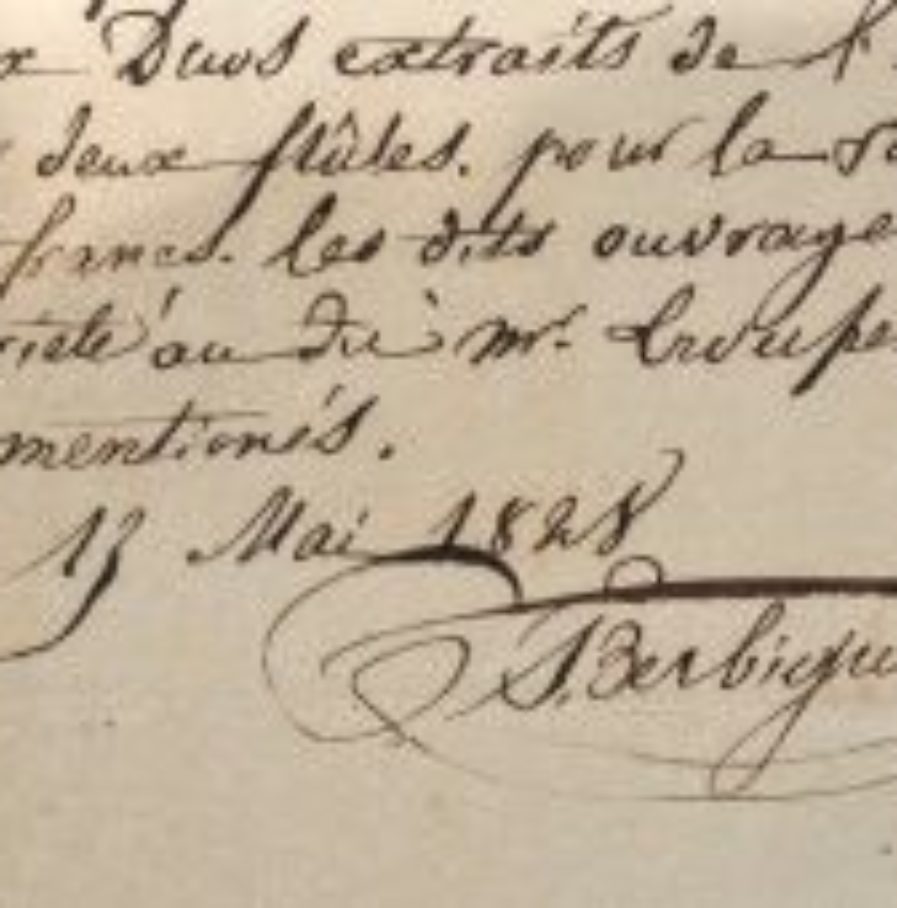 x Duos extraits de l'
deux flûtes. pour la so
francs. les dits ouvrage
riété au du mr. Troupe
mentionés.
13 Mai 1828
T. Berbigu